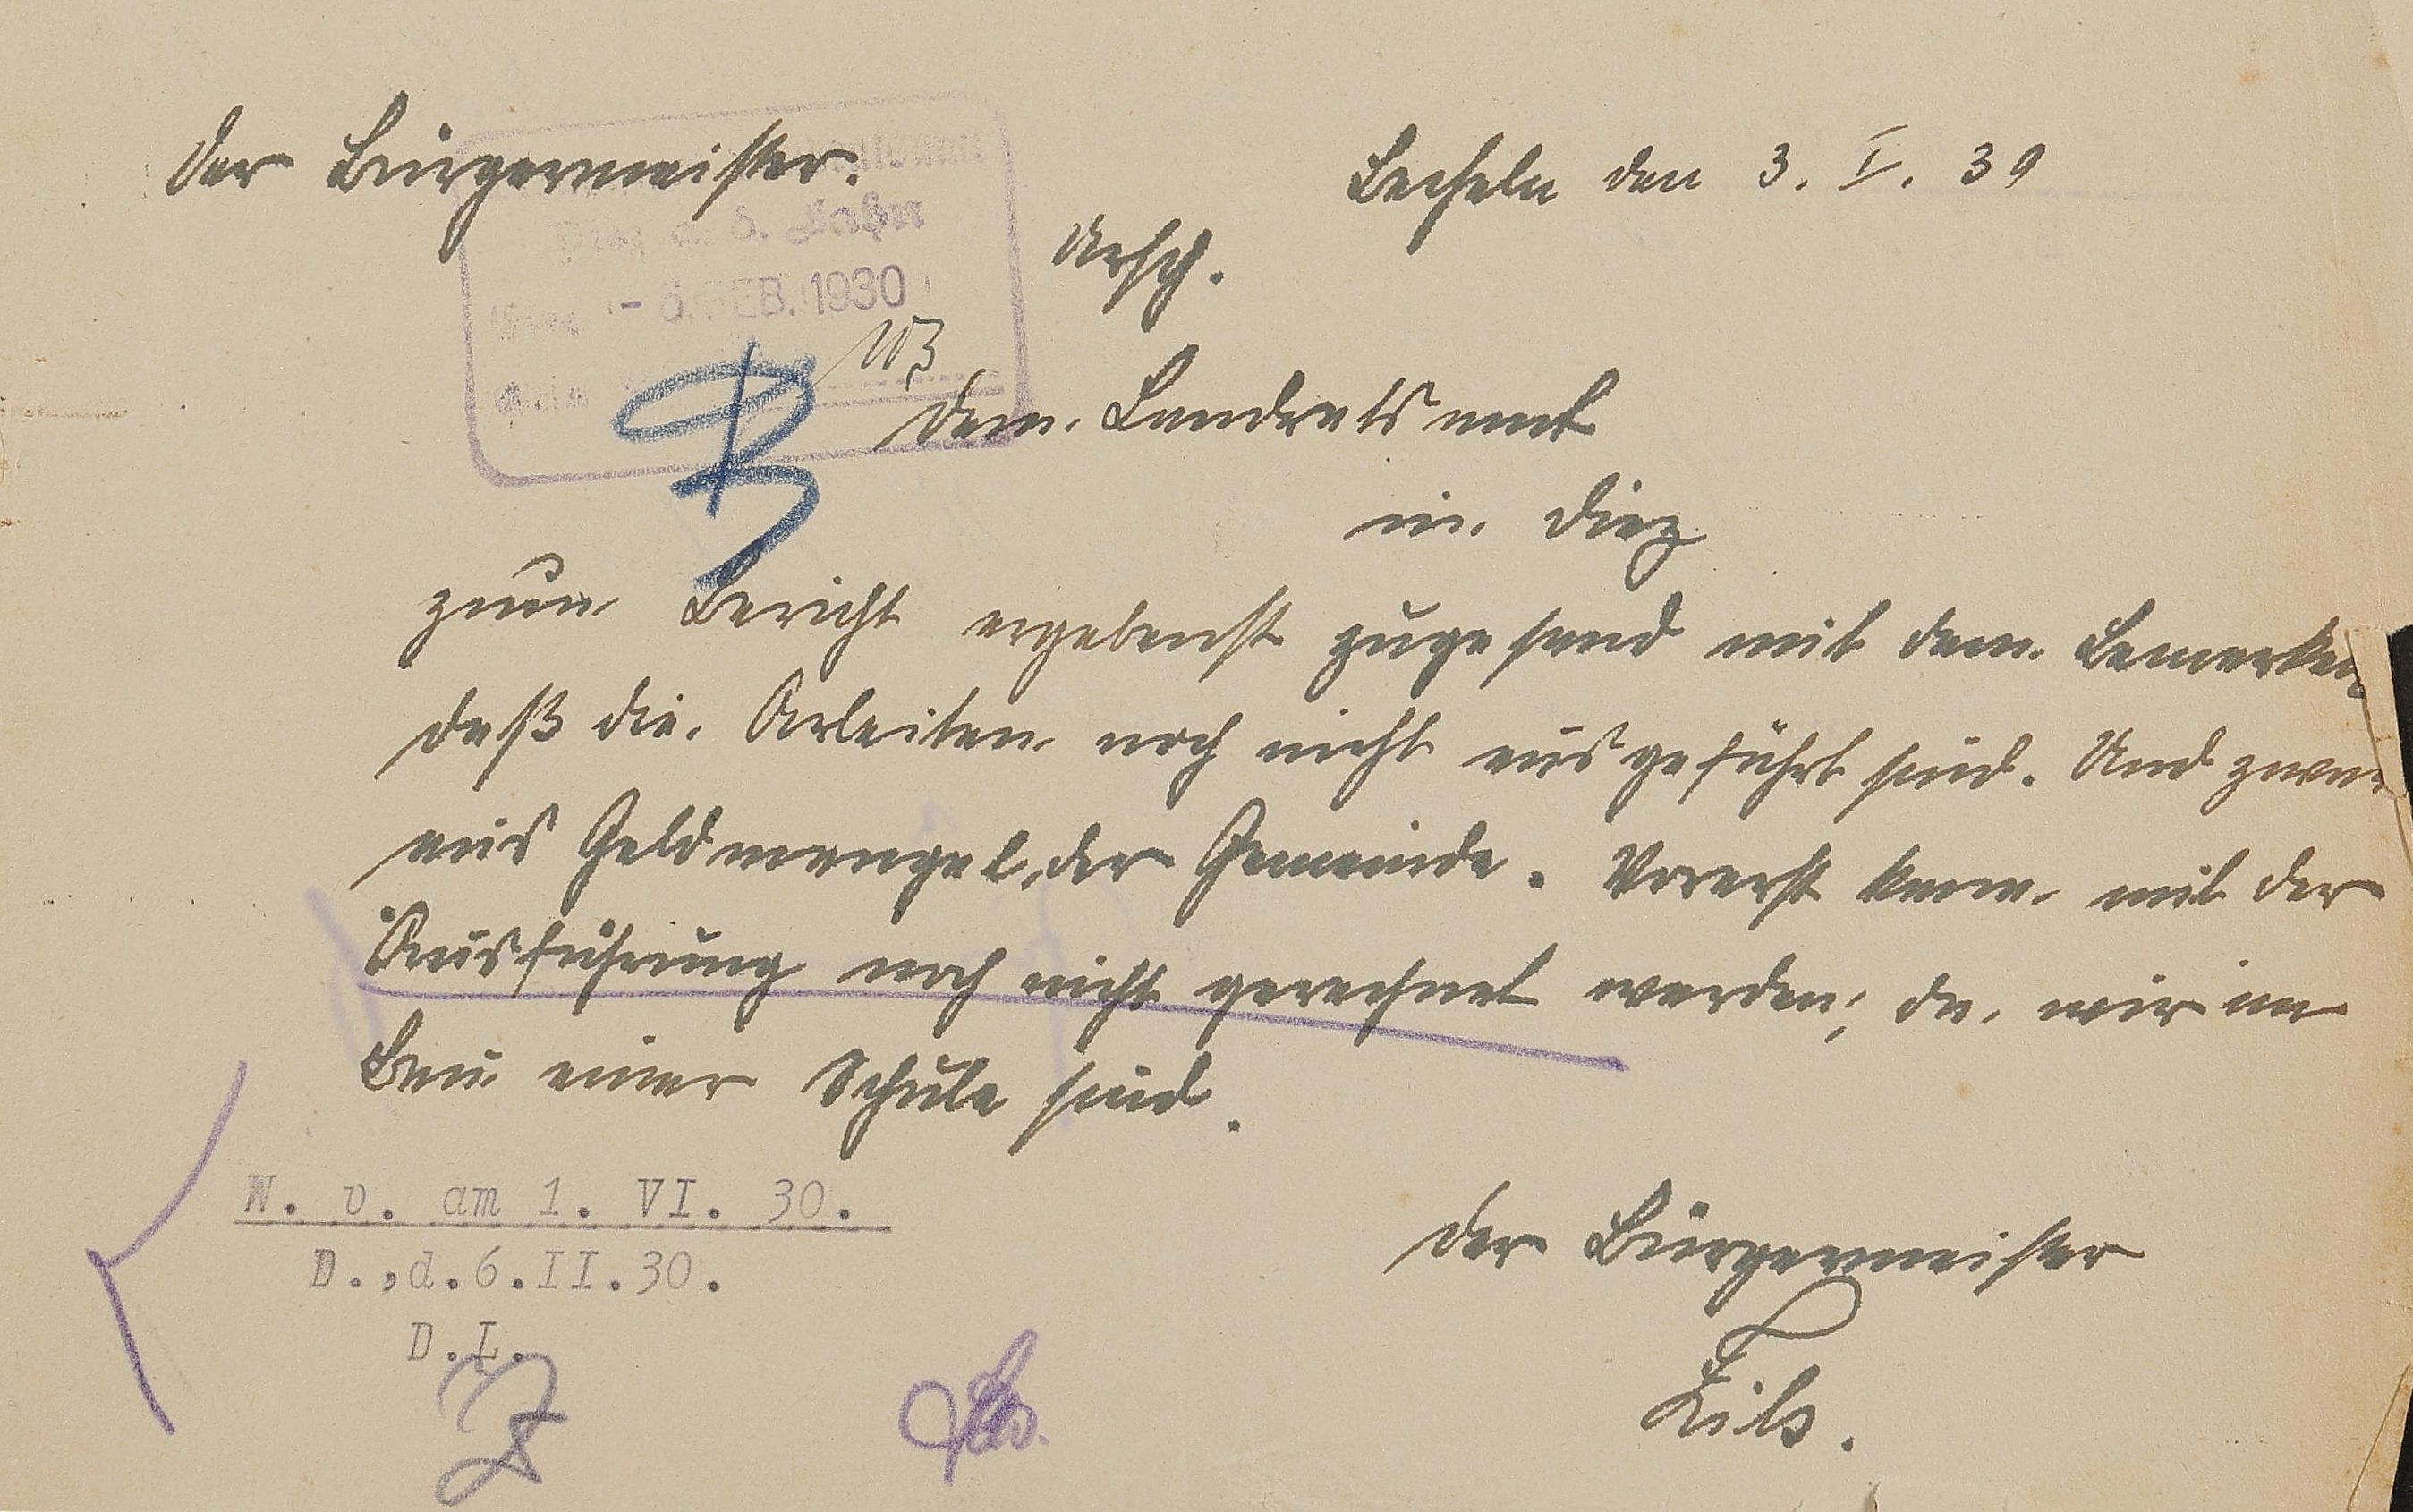 Der Bürgermeister.
Becheln den 3. I. 30
Ursch.
Dem Landratsamt
in Diez
zum Bericht ergebenst zugesand mit dem Bemerken
daß die Arbeiten noch nicht ausgeführt sind. Und zwar
aus Geldmangel, der Gemeinde. Vorerst kann mit der
Ausführung noch nicht gerechnet werden, da wir im
Bau einer Schule sind.
Diez a. d. Lahn
FEB. 1930
W. v. am 1. VI. 30.
D.,d.6.II.30.
D.L.
Der Bürgermeister